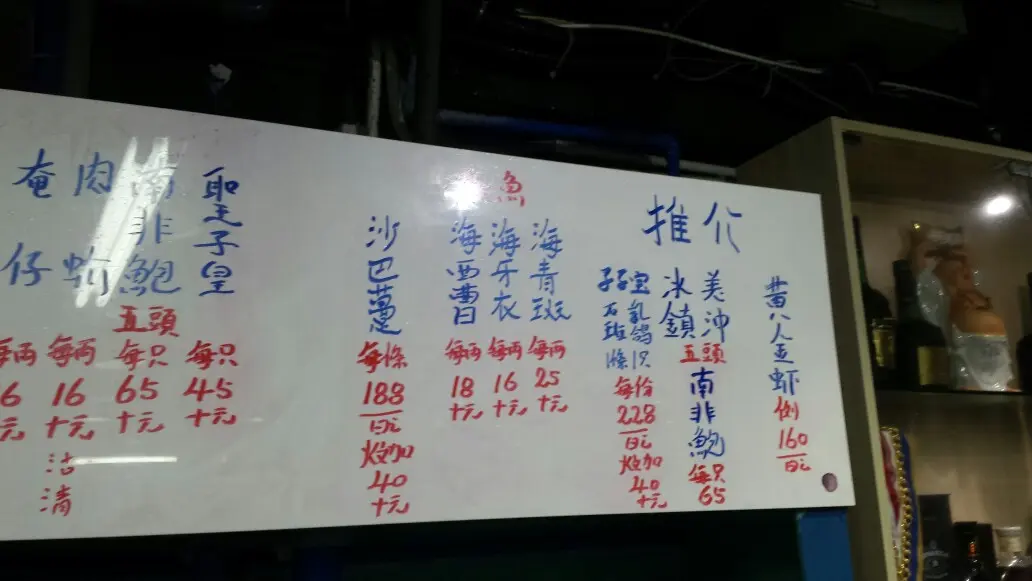 推介
虾
例
160
百元
美沖
冰鎮
五頭
南非鮑
每只
65
乳鴿1只
石斑1條
每份
228
百元
炆加
40
十元
魚
海青斑
每両
25
十元
海牙衣
每両
16
十元
海西曹
每両
18
十元
沙巴躉
每條
188
百元
炆加
40
十元
聖子皇
每只
45
十元
南非鮑
五頭
每只
65
十元
肉蚧
每両
16
十元
沽清
奄仔
每両
6
元